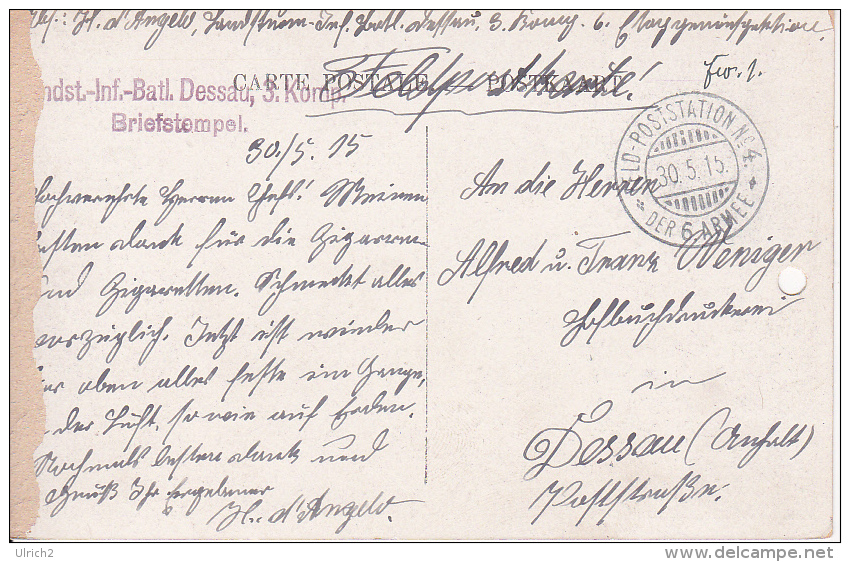 Abs.: H. d'Angelo, Landsturm-Inf. Batl. Dessau, 3. Komp. 6. Etappeninspektion.
CARTE POSTALE — POSTKARTE
Feldpostkarte!
ndst.-Inf.-Batl. Dessau, 3. Komp.
Briefstempel.
30./5. 15
FELD-POSTSTATION No 4.
30.5.15.
DER 6 ARMEE
Hochverehrte Herren Chefs! Meinen
besten Dank für die Zigarren
und Zigaretten. Schmeckt alles
vorzüglich. Jetzt ist wieder
hier oben alles feste im Gange,
in der Luft, sowie auf Erden.
Nochmals besten Dank und
Gruß Ihr ergebener
H. d'Angelo.
An die Herren
Alfred u. Franz Wenigen
Hofbuchdruckerei
in
Dessau (Anhalt)
Poststraße.
Ulrich2
www.delcampe.net